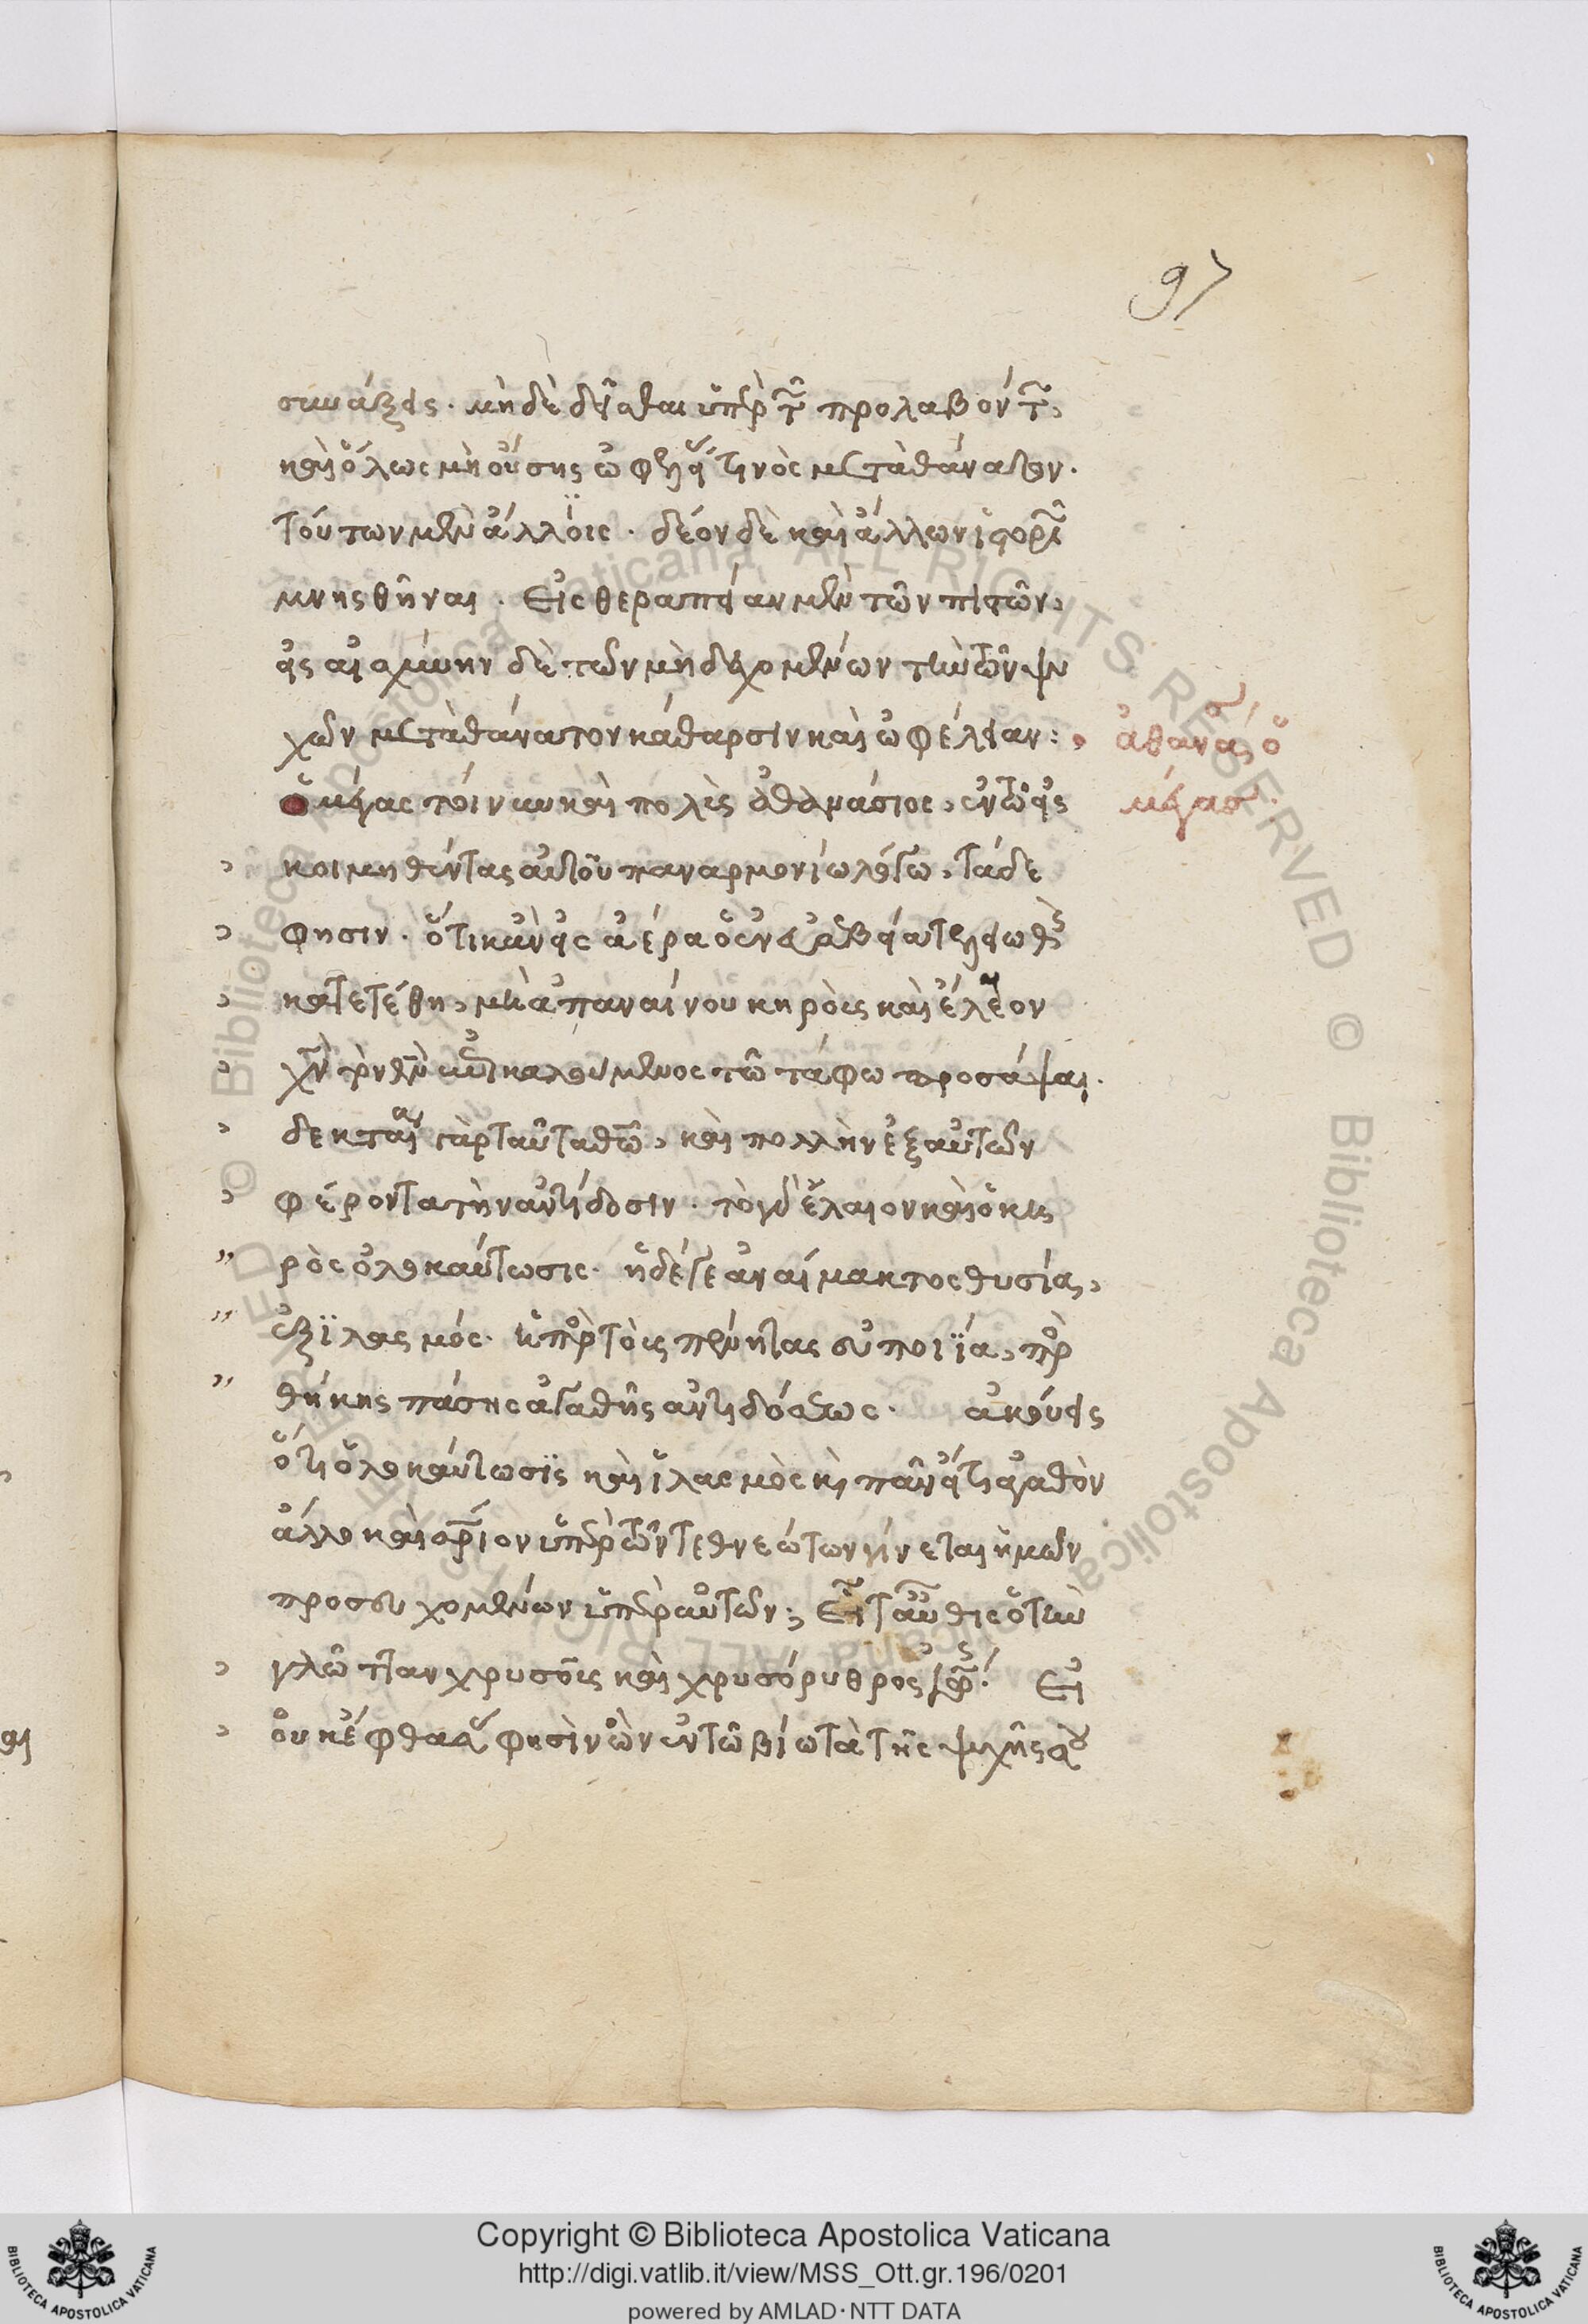 97
συνάξεις. μὴ δὲ δεῖσθαι ὑπὲρ τῶν προλαβόντων,
καὶ ὅλως μὴ οὔσης ὠφελείας τινὸς μετὰ θάνατον.
τούτων μὲν ἄλλοις. δέον δὲ καὶ ἄλλων ἱστοριῶν
μνησθῆναι. Εἰς θεραπείαν μὲν τῶν πιστῶν,
εἰς αἰσχύνην δὲ τῶν μὴ δεχομένων τὴν τῶν ψυ
χῶν μετὰ θάνατον κάθαρσιν καὶ ὠφέλειαν:
ἀθανάσιος ὁ
μέγας.
ὁ μέγας τοίνυν καὶ πολὺς ἀθανάσιος, ἐν τῷ εἰς
κοιμηθέντας αὐτοῦ παναρμονίω λόγω, τάδε
φησιν. ὅτι κἂν εἰς ἀέρα ὁ ἐν εὐσεβείᾳ τελειωθεὶς
κατετέθη, μὴ ἀπαναίνου κηροὺς καὶ ἔλεον
χν τὸν θν ἐπικαλούμενος τῶ τάφω προσάψαι.
δεκταὶ γὰρ ταῦτα θῶ, καὶ πολλὴν ἐξ αὐτῶν
φέροντα τὴν ἀντίδοσιν. τὸ γὰρ ἔλαιον καὶ ὁ κη
ρὸς ὁλοκαύτωσις. ἡ δέ γε ἀναίμακτος θυσία,
ἐξϊλασμός. ἡ πρὸς τοὺς πένητας εὐποιΐα, προσ
θήκης πάσης ἀγαθῆς ἀντιδόσεως. ἀκούεις
ὅτι ὁλοκαύτωσϊς καὶ ἱλασμὸς καὶ πᾶν εἴτι ἀγαθὸν
ἄλλο καὶ σωτήριον ὑπὲρ τῶν τεθνεώτων γίνεται ἡμῶν
προσευχομένων ὑπὲρ αὐτῶν; Εἶτ αὖθις ὁ τὴν
γλῶτταν χρυσοῦς καὶ χρυσόρυθρος
Εἰ
οὐκ ἔφθασας φησὶν ὢν ἐν τῶ βίω τὰ τῆς ψυχῆς σου
Copyright © Biblioteca Apostolica Vaticana
http://digi.vatlib.it/view/MSS_Ott.gr.196/0201
powered by AMLAD·NTT DATA
BIBLIOTECA APOSTOLICA VATICANA
BIBLIOTECA APOSTOLICA VATICANA
© Biblioteca Apostolica Vaticana, ALL RIGHTS RESERVED
© Biblioteca Apostolica Vaticana, ALL RIGHTS RESERVED